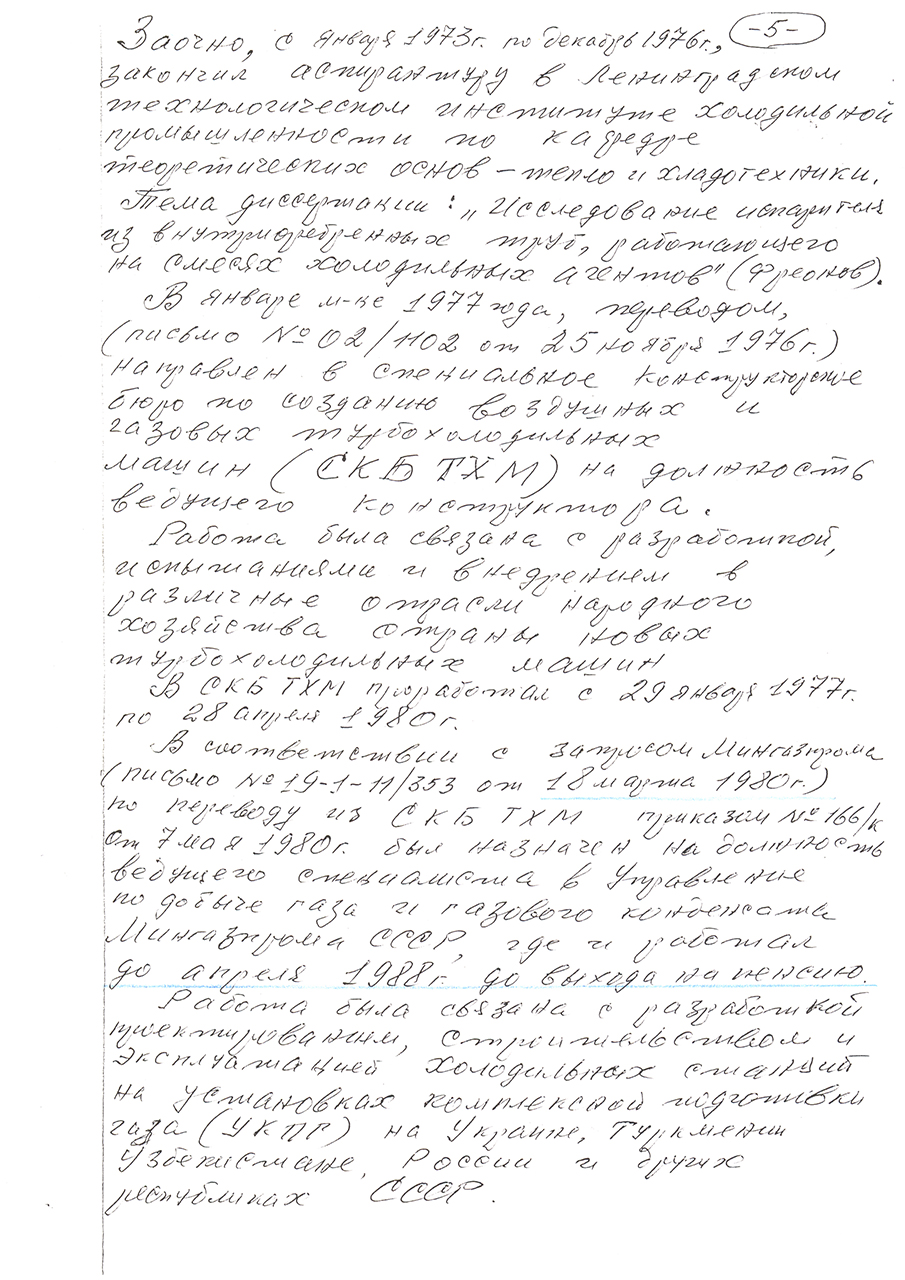 Заочно, с января 1973г. по декабрь 1976г., -5-
закончил аспирантуру в Ленинградском
технологическом институте холодильной
промышленности по кафедре
теоретических основ – тепло и хладотехники.
Тема диссертации: „Исследование испарителя
из внутриоребренных труб, работающего
на смесях холодильных агентов" (Фреонов).
В январе м-це 1977 года, переводом,
(письмо № 02/1102 от 25 ноября 1976г.)
направлен в специальное конструкторское
бюро по созданию воздушных и
газовых турбохолодильных
машин (СКБ ТХМ) на должность
ведущего конструктора.
Работа была связана с разработкой,
испытаниями и внедрением в
различные отрасли народного
хозяйства страны новых
турбохолодильных машин
В СКБ ТХМ проработал с 29 января 1977г.
по 28 апреля 1980г.
В соответствии с запросом Мингазпрома
(письмо № 19-1-11/353 от 18 марта 1980г.)
по переводу из СКБ ТХМ приказом № 166/к
от 7 мая 1980г. был назначен на должность
ведущего специалиста в Управление
по добыче газа и газового конденсата
Мингазпрома СССР, где и работал
до апреля 1988г. до выхода на пенсию.
Работа была связана с разработкой
проектированием, строительством и
эксплуатацией холодильных станций
на установках комплексной подготовки
газа (УКПГ) на Украине, Туркмении
Узбекистане, России и других
республиках СССР.